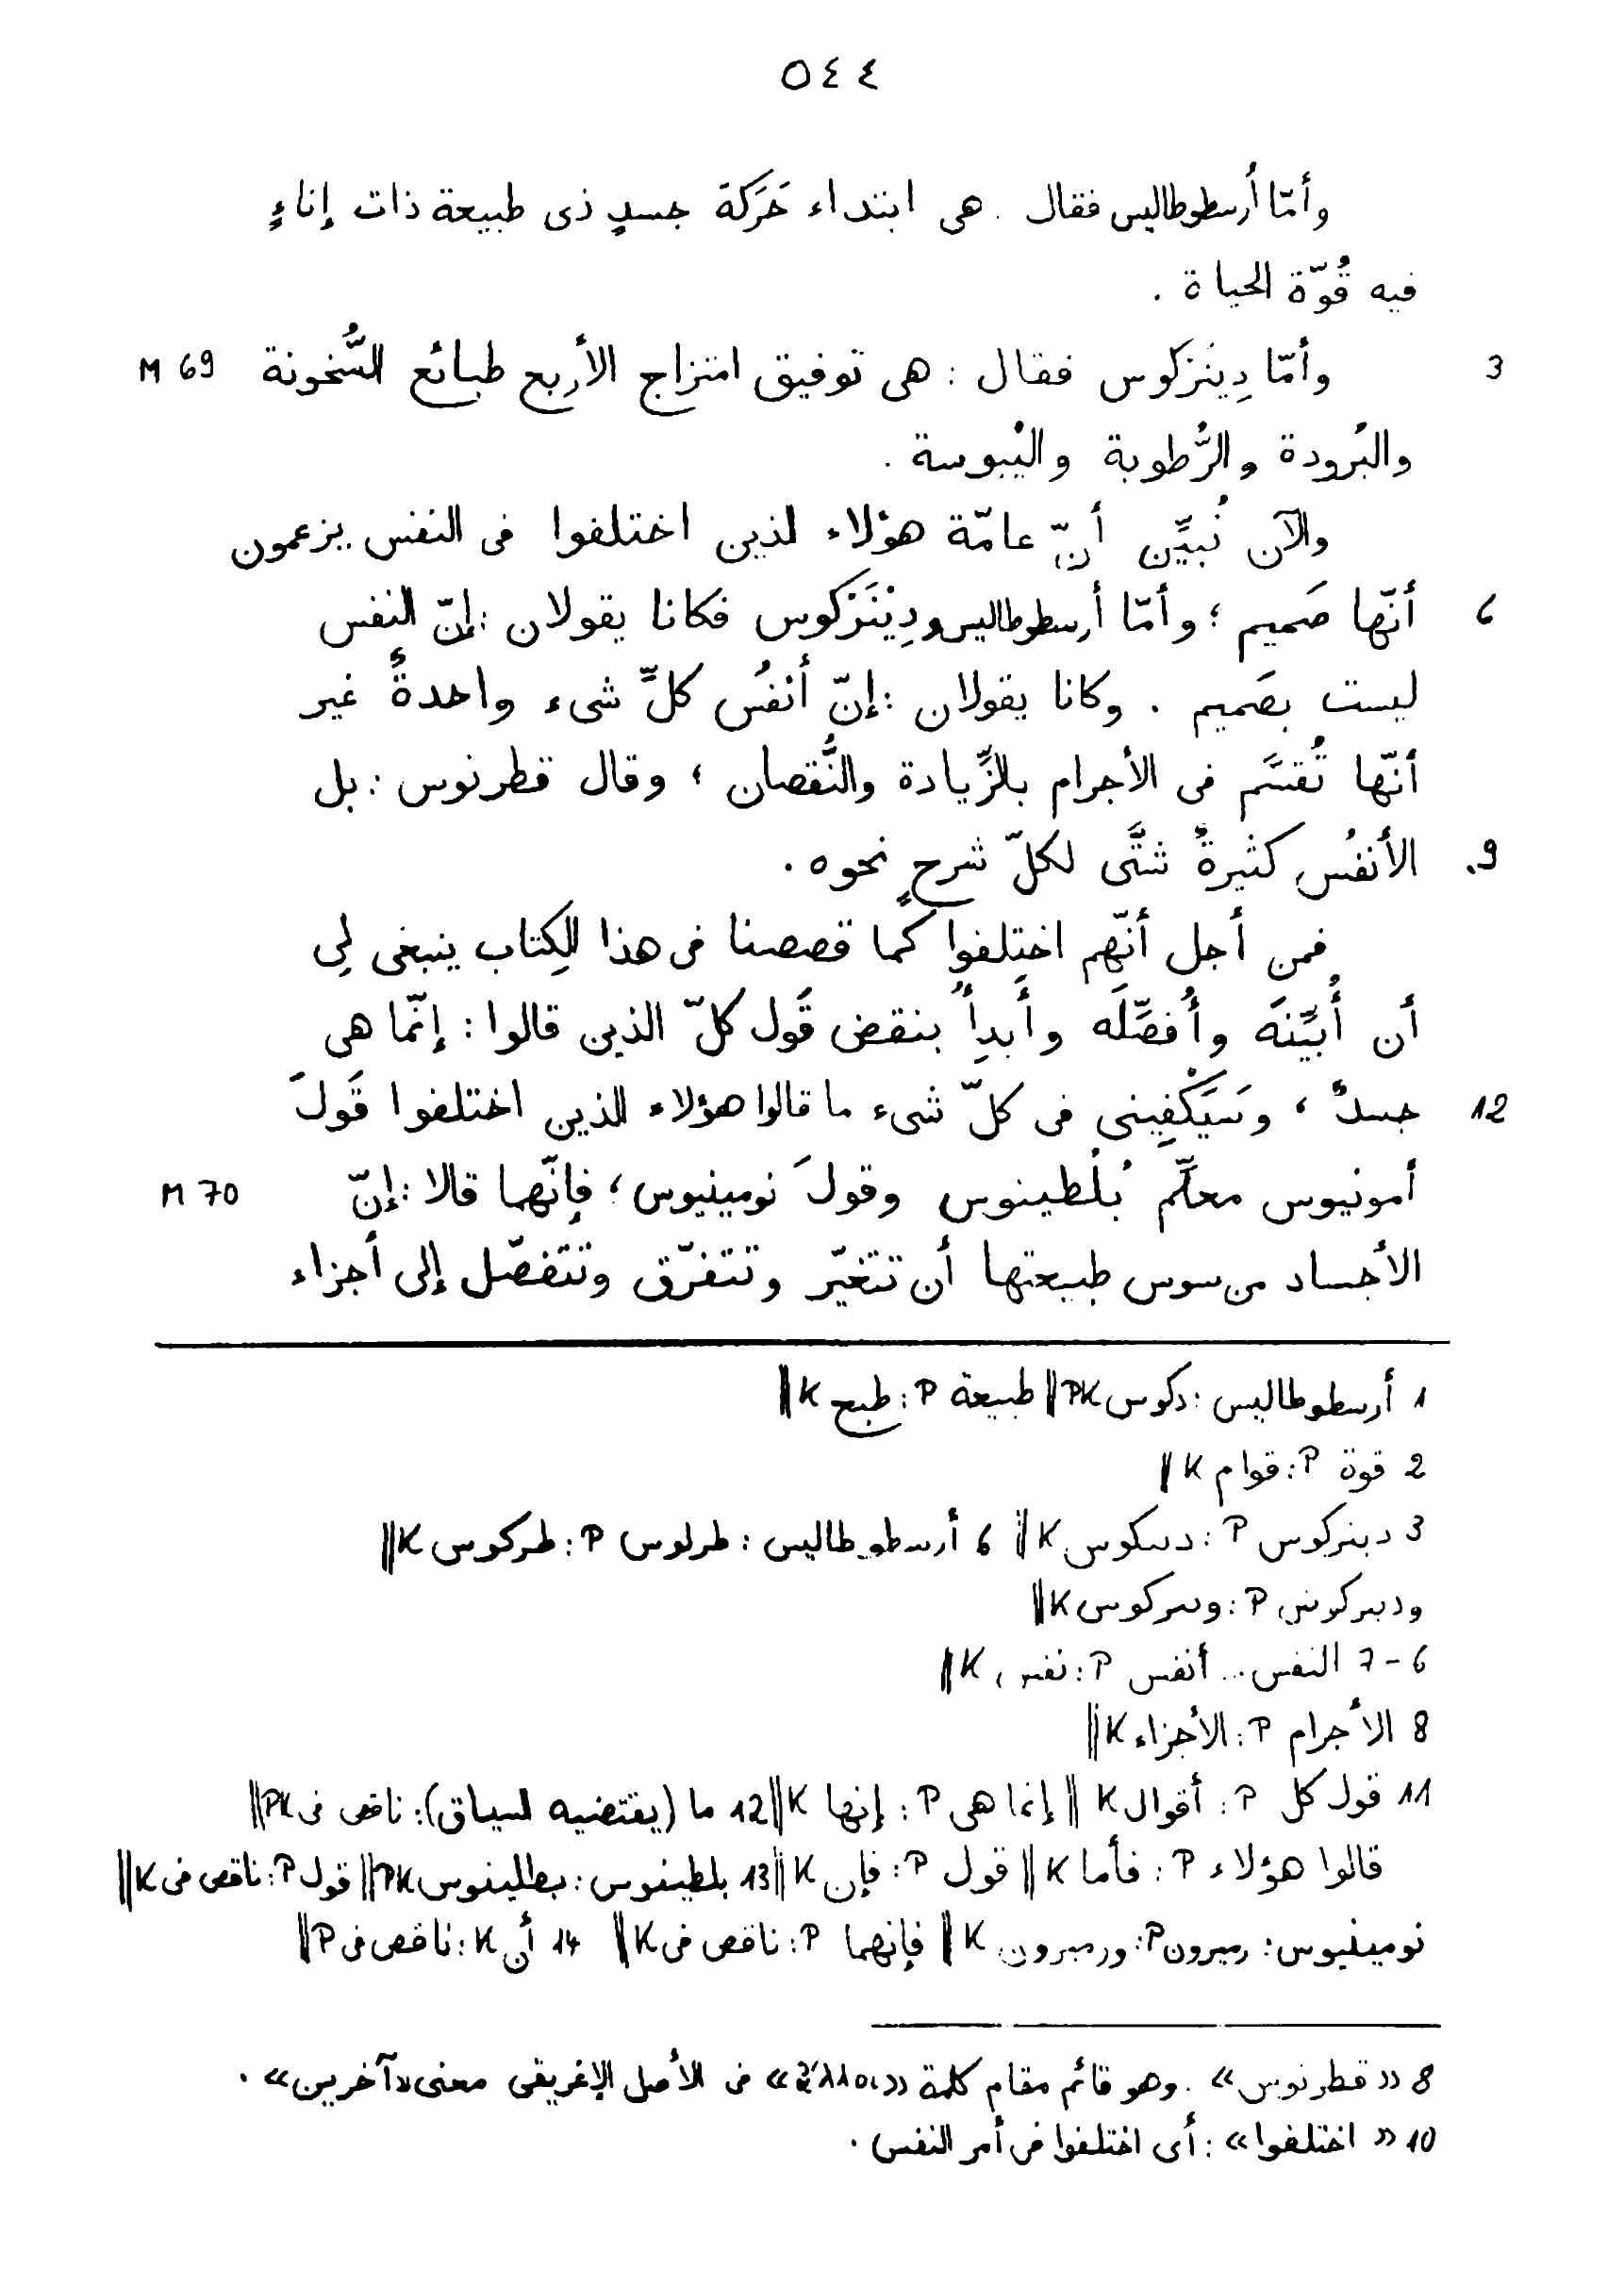 ٥٤٤
وأمّا أرسطوطاليس فقال . هى ابتداء حَرَكة جسدٍ ذى طبيعة ذات إناءٍ
فيه قُوّة الحياة .
3 وأمّا دِينَزكوس فقال : هى توفيق امتزاج الأربع طبائع السُّخونة M 69
والبُرودة والرُّطوبة واليُبوسة .
والآن نُبيِّن أنّ عامّة هؤلاء الذين اختلفوا فى النفس يزعمون
6 أنّها صَميم ؛ وأمّا أرسطوطاليس ودِيْنَزْكوس فكانا يقولان : إنّ النفس
ليست بصَميم . وكانا يقولان : إنّ أنفُس كلِّ شىء واحدةٌ غير
أنّها تُقسَّم فى الأجرام بالزِّيادة والنُّقصان ؛ وقال قطرنوس : بل
9. الأنفُس كثيرةٌ شتَّى لكلّ شرحٍ نحوه .
فمن أجل أنّهم اختلفوا كما قصصنا فى هذا الكِتاب ينبغى لِى
أن أُبيِّنَه وأُفصِّلَه وأَبدأَ بنقض قَول كلّ الذين قالوا : إنّما هى
12 جسدٌ ، وسَيَكْفِينى فى كلّ شىء ما قالوا هؤلاء الذين اختلفوا قَولَ
أمونيوس معلّم بُلُطينوس وقولَ نومينيوس ؛ فإنّهما قالا : إنّ M 70
الأجساد من سوس طبيعتها أن تتغيّر وتتفرّق وتتفصّل إلى أجزاء
1 أرسطوطاليس : دكوس PK || طبيعة P : طبع K ||
2 قوة P : قوام K ||
3 دينزكوس P : دسكوس K || 6 أرسطوطاليس : طرلوس P : طركوس K ||
ودىىركوس P : وىىركوس K ||
6 - 7 النفس ... أنفس P : نفس K ||
8 الأجرام P : الأجزاء K ||
11 قول كل P : أقوال K || إنما هى P : إنها K || 12 ما (يقتضيه السياق) : ناقص فى PK ||
قالوا هؤلاء P : فأما K || قول P : فإن K || 13 بلطينوس : بطالينوس PK || قول P : ناقص فى K ||
نومينيوس : رميرون P : ورمىرون K || فإنهما P : ناقص فى K || 14 أن K : ناقص فى P ||
8 « قطرنوس » . وهو قائم مقام كلمة « ἄλλοι » فى الأصل الإغريقى معنى « آخرين » .
10 « اختلفوا » : أى اختلفوا فى أمر النفس .